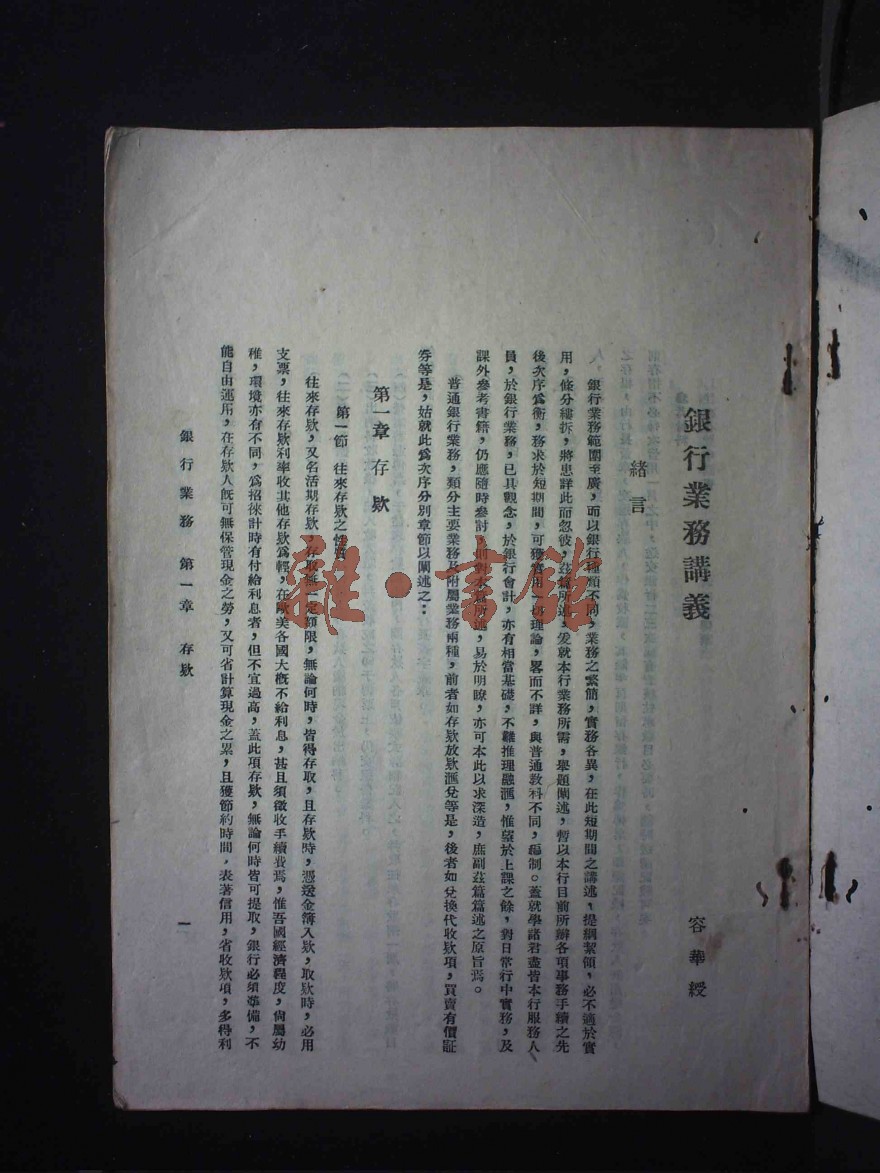 銀行業務講義
容華綬
緒言
銀行業務範圍至廣,而以銀行種類不同,業務之繁簡,實務各異,在此短期間之講述,提綱絜領,必不適於實
用,條分縷拆,將患詳此而忽彼,茲篇所述,爰就本行業務所需,舉題闡述,暫以本行目前所辦各項事務手續之先
後次序爲衡,務求於短期間,可獲實用一切理論,畧而不詳,與普通教科不同,編制。蓋就學諸君盡皆本行服務人
員,於銀行業務,已具觀念,於銀行會計,亦有相當基礎,不難推理融滙,惟望於上課之餘,對日常行中實務,及
課外參考書籍,仍應隨時參討,則對本篇所述,易於明瞭,亦可本此以求深造,庶副茲篇篇述之原旨焉。
普通銀行業務,類分主要業務及附屬業務兩種,前者如存欵放欵滙兌等是,後者如兌換代收欵項,買賣有價証
券等是,姑就此爲次序分別章節以闡述之:
第一章 存欵
第一節 往來存欵之性質
往來存欵,又名活期存欵,存取無一定額限,無論何時,皆得存取,且存欵時,憑送金簿入欵,取欵時,必用
支票,往來存欵利率收其他存欵爲輕,在歐美各國大概不給利息,甚且須徵收手續費焉,惟吾國經濟程度,尙屬幼
稚,環境亦有不同,爲招徠計時有付給利息者,但不宜過高,蓋此項存欵,無論何時皆可提取,銀行必須準備,不
能自由運用,在存欵人旣可無保管現金之勞,又可省計算現金之累,且獲節約時間,表著信用,省收欵項,多得利
銀行業務 第一章 存欵
一
雜·書館